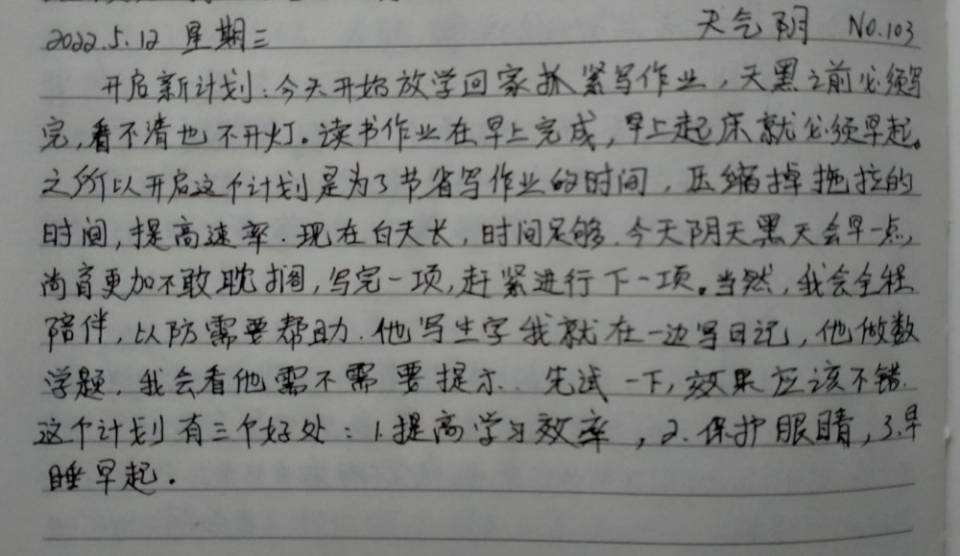 2022.5.12 星期三 天气阴 NO.103
开启新计划:今天开始放学回家抓紧写作业,天黑之前必须写
完,看不清也不开灯。读书作业在早上完成,早上起床就必须早起。
之所以开启这个计划是为了节省写作业的时间,压缩掉拖拉的
时间,提高速率.现在白天长,时间足够.今天阴天黑天会早一点,
尚育更加不敢耽搁,写完一项,赶紧进行下一项。当然,我会全程
陪伴,以防需要帮助.他写生字我就在一边写日记,他做数
学题,我会看他需不需要提示.先试一下,效果应该不错.
这个计划有三个好处:1.提高学习效率,2.保护眼睛,3.早
睡早起.